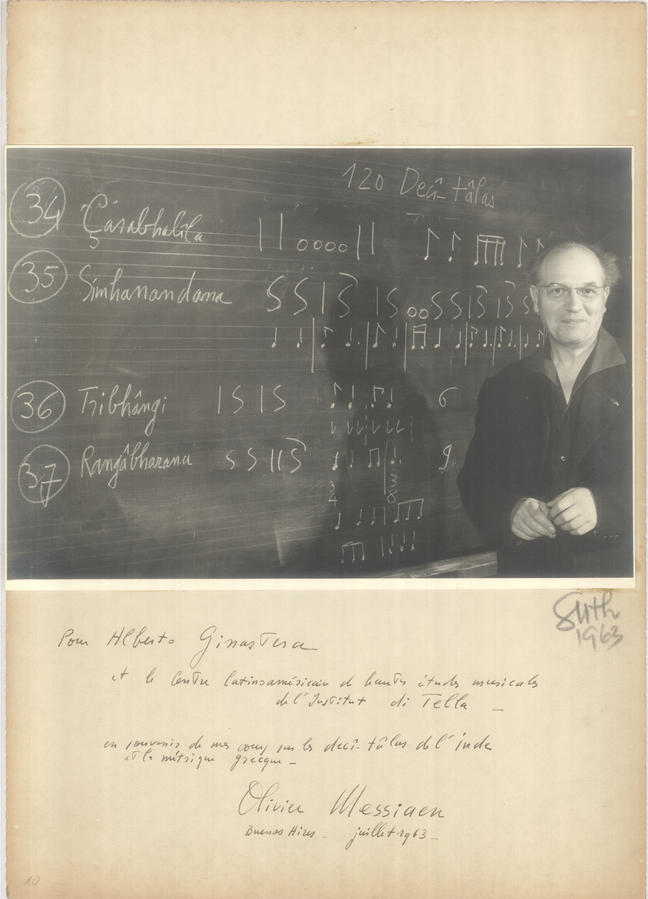 120 Decî-tâlas
34 Çarabhalîla
35 Simhanandana
36 Tribhângi
6
37 Rangâbharana
9
3
4
3
8
1963
Pour Alberto Ginastera
et le Centre latinoaméricain de hautes études musicales
de l'Institut di Tella _
en souvenir de mes cours sur les decî-tâlas de l'inde
et la métrique grecque _
Olivier Messiaen
Buenos Aires _ juillet 1963 _
10